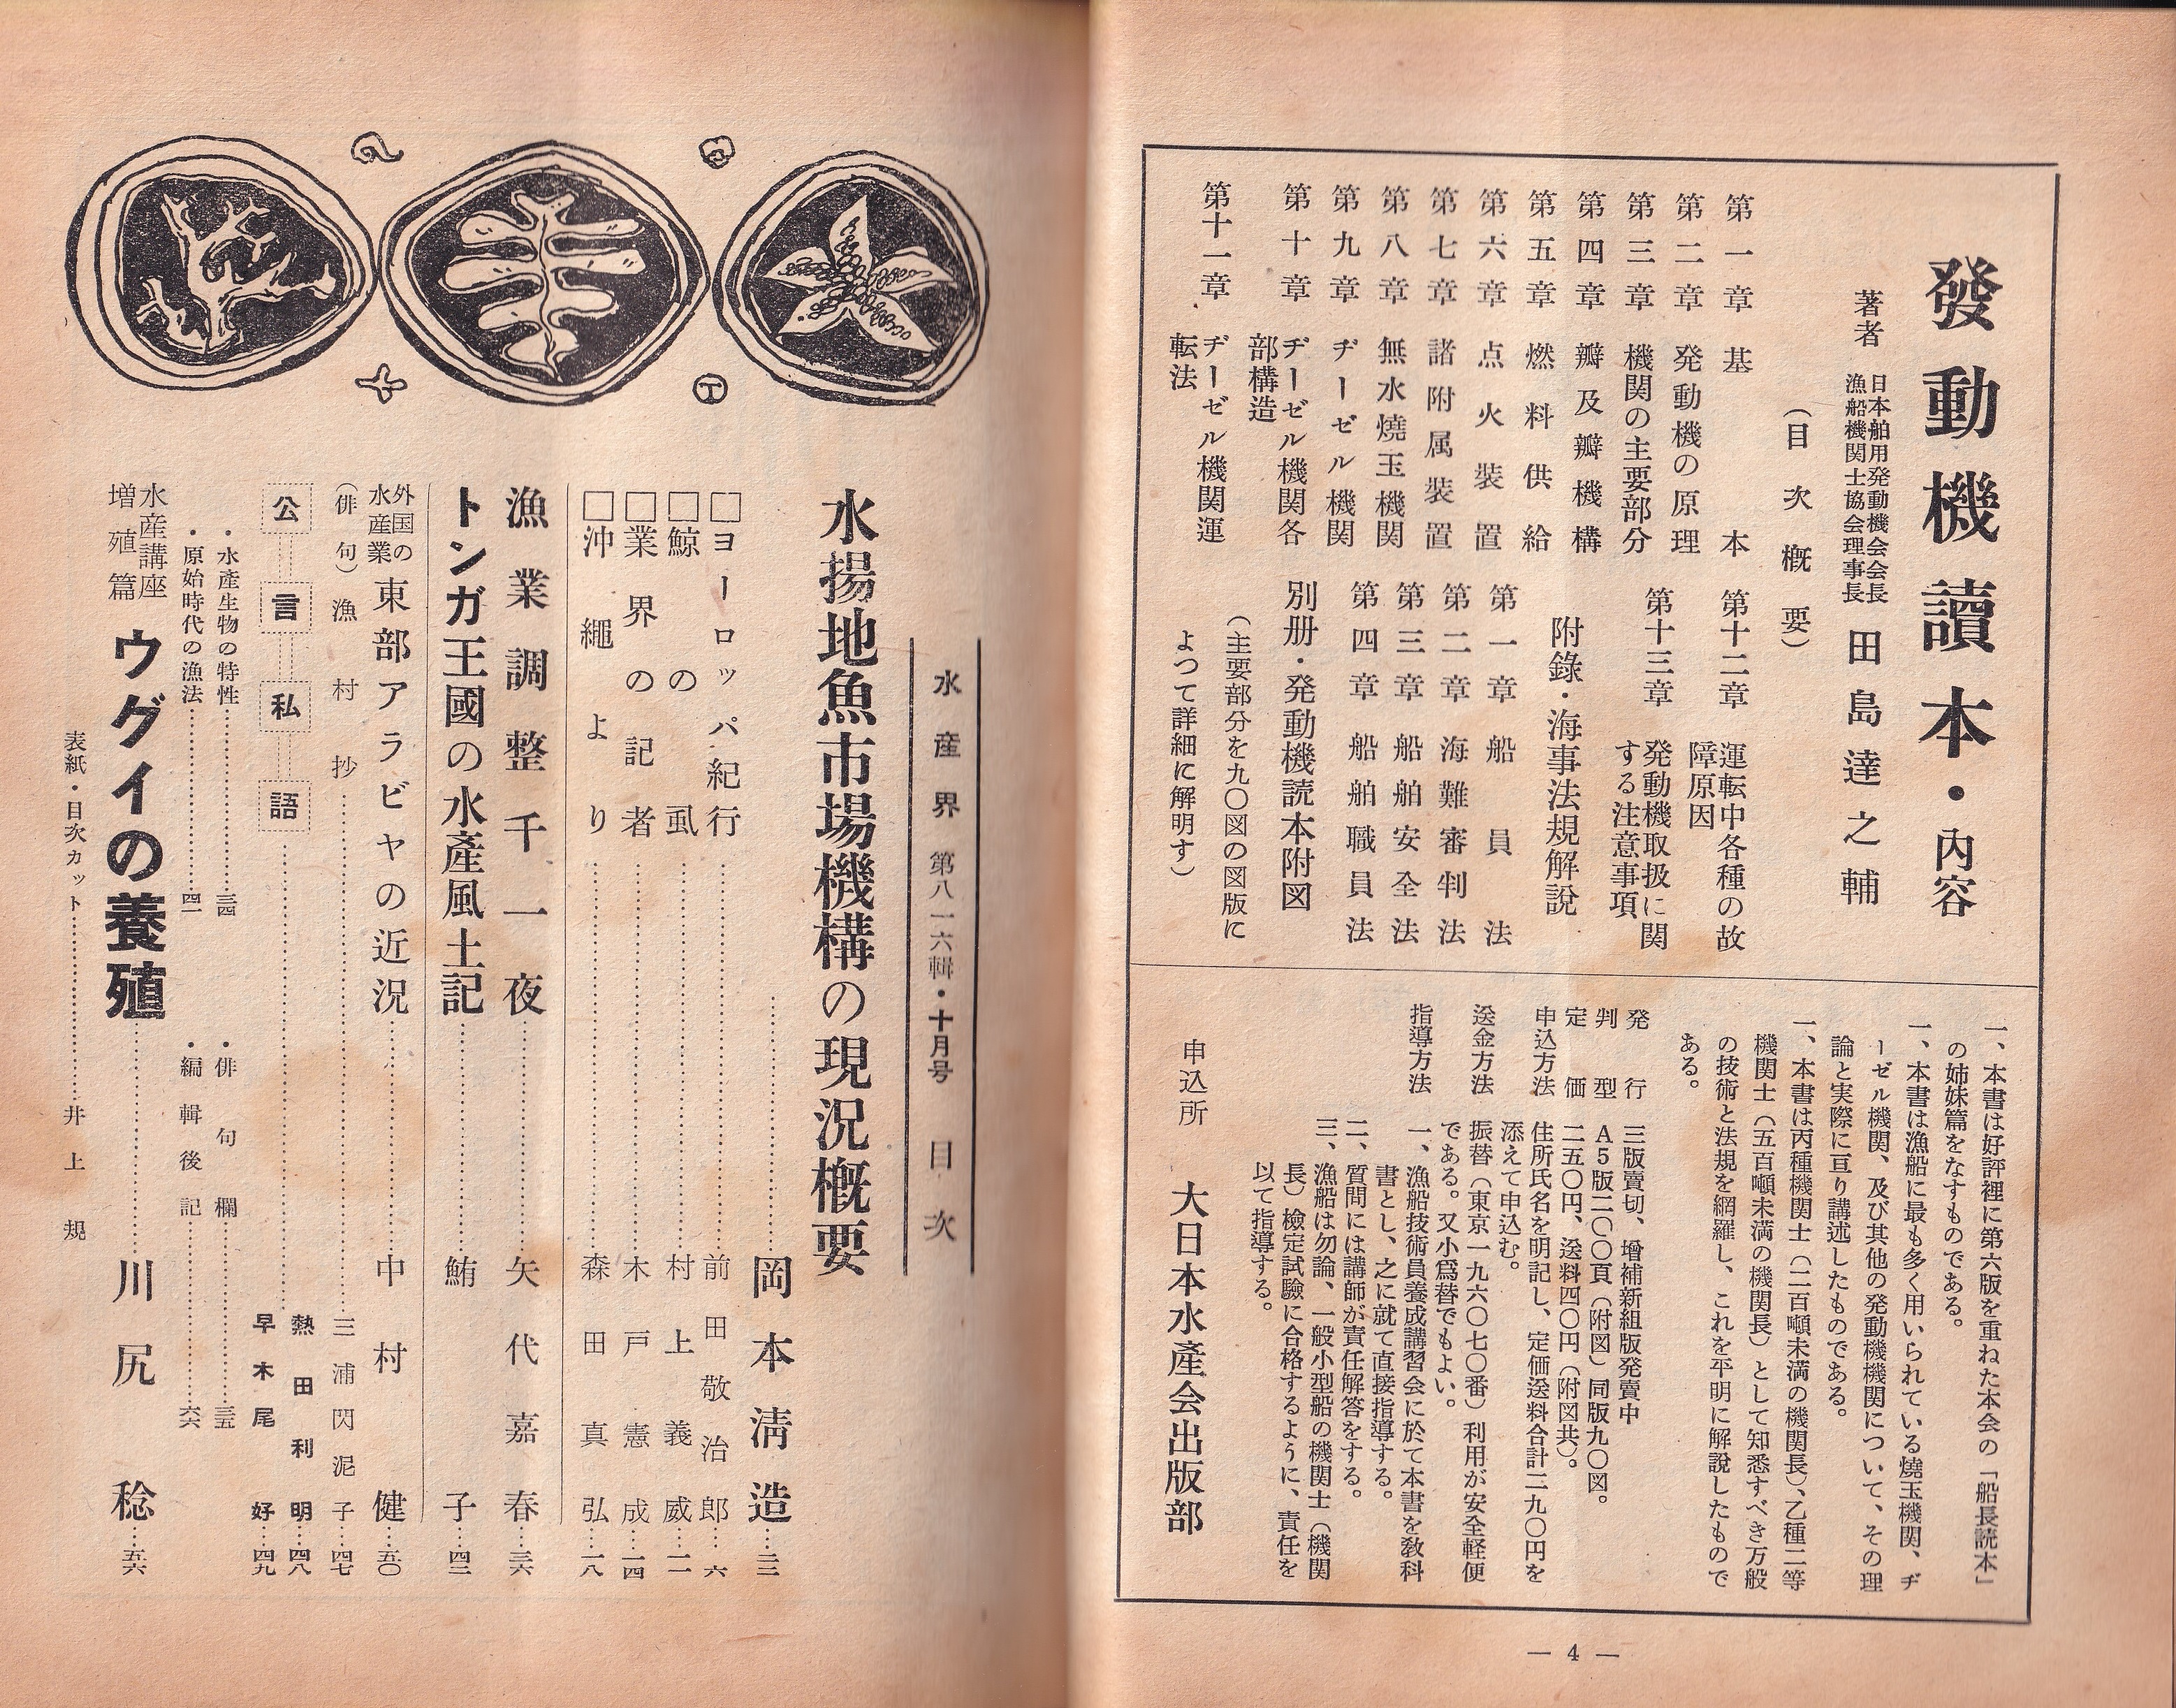 發動機讀本・内容
著者 日本舶用発動機会会長
漁船機関士協会理事長 田島達之輔
（目次概要）
第一章 基本
第二章 発動機の原理
第三章 機関の主要部分
第四章 瓣及瓣機構
第五章 燃料供給
第六章 点火装置
第七章 諸附属装置
第八章 無水燒玉機関
第九章 ヂーゼル機関
第十章 ヂーゼル機関各
部構造
第十一章 ヂーゼル機関運
転法
第十二章 運転中各種の故
障原因
第十三章 発動機取扱に関
する注意事項
附錄・海事法規解説
第一章 船員法
第二章 海難審判法
第三章 船舶安全法
第四章 船舶職員法
別册・発動機読本附図
（主要部分を九〇図の図版に
よつて詳細に解明す）
一、本書は好評裡に第六版を重ねた本会の「船長読本」
の姉妹篇をなすものである。
一、本書は漁船に最も多く用いられている燒玉機関、ヂ
ーゼル機関、及び其他の発動機機関について、その理
論と実際に亘り講述したものである。
一、本書は丙種機関士（二百噸未満の機関長）、乙種二等
機関士（五百噸未満の機関長）として知悉すべき万般
の技術と法規を網羅し、これを平明に解説したもので
ある。
発行 三版賣切、増補新組版発賣中
判型 A5版二〇〇頁（附図）同版九〇図。
定価 二五〇円、送料四〇円（附図共）。
申込方法 住所氏名を明記し、定価送料合計二九〇円を
添えて申込む。
送金方法 振替（東京一九六〇七〇番）利用が安全軽便
である。又小爲替でもよい。
指導方法 一、漁船技術員養成講習会に於て本書を敎科
書とし、之に就て直接指導する。
二、質問には講師が責任解答をする。
三、漁船は勿論、一般小型船の機関士（機関
長）檢定試驗に合格するように、責任を
以て指導する。
申込所 大日本水產会出版部
― 4 ―
水産界 第八一六輯・十月号 目次
水揚地魚市場機構の現況概要
岡本清造…三二
□ヨーロッパ紀行……前田敬治郎…六
□鯨の虱……村上義威…一一
□業界の記者……木戸憲成…一四
□沖繩より……森田真弘…一八
漁業調整千一夜……矢代嘉春…三六
トンガ王國の水產風土記……鮪子…四三
外国の
水産業 東部アラビヤの近況……中村健…五〇
（俳句）漁村抄……三浦閃泥子…四七
公言私語……熱田利明…四八
早木尾好…四九
・水產生物の特性……三四
・俳句欄……三五
・原始時代の漁法……四一
・編輯後記……六六
水産講座
増殖篇 ウグイの養殖……川尻稔…五六
表紙・目次カット……井上規